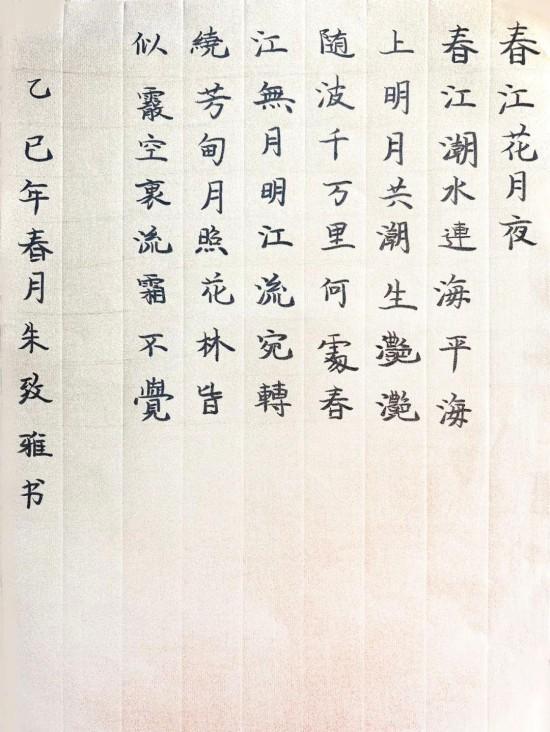 春江花月夜
春江潮水連海平海
上明月共潮生灔灔
随波千万里何處春
江無月明江流宛轉
繞芳甸月照花林皆
似霰空裏流霜不覺
乙巳年春月朱致雅书